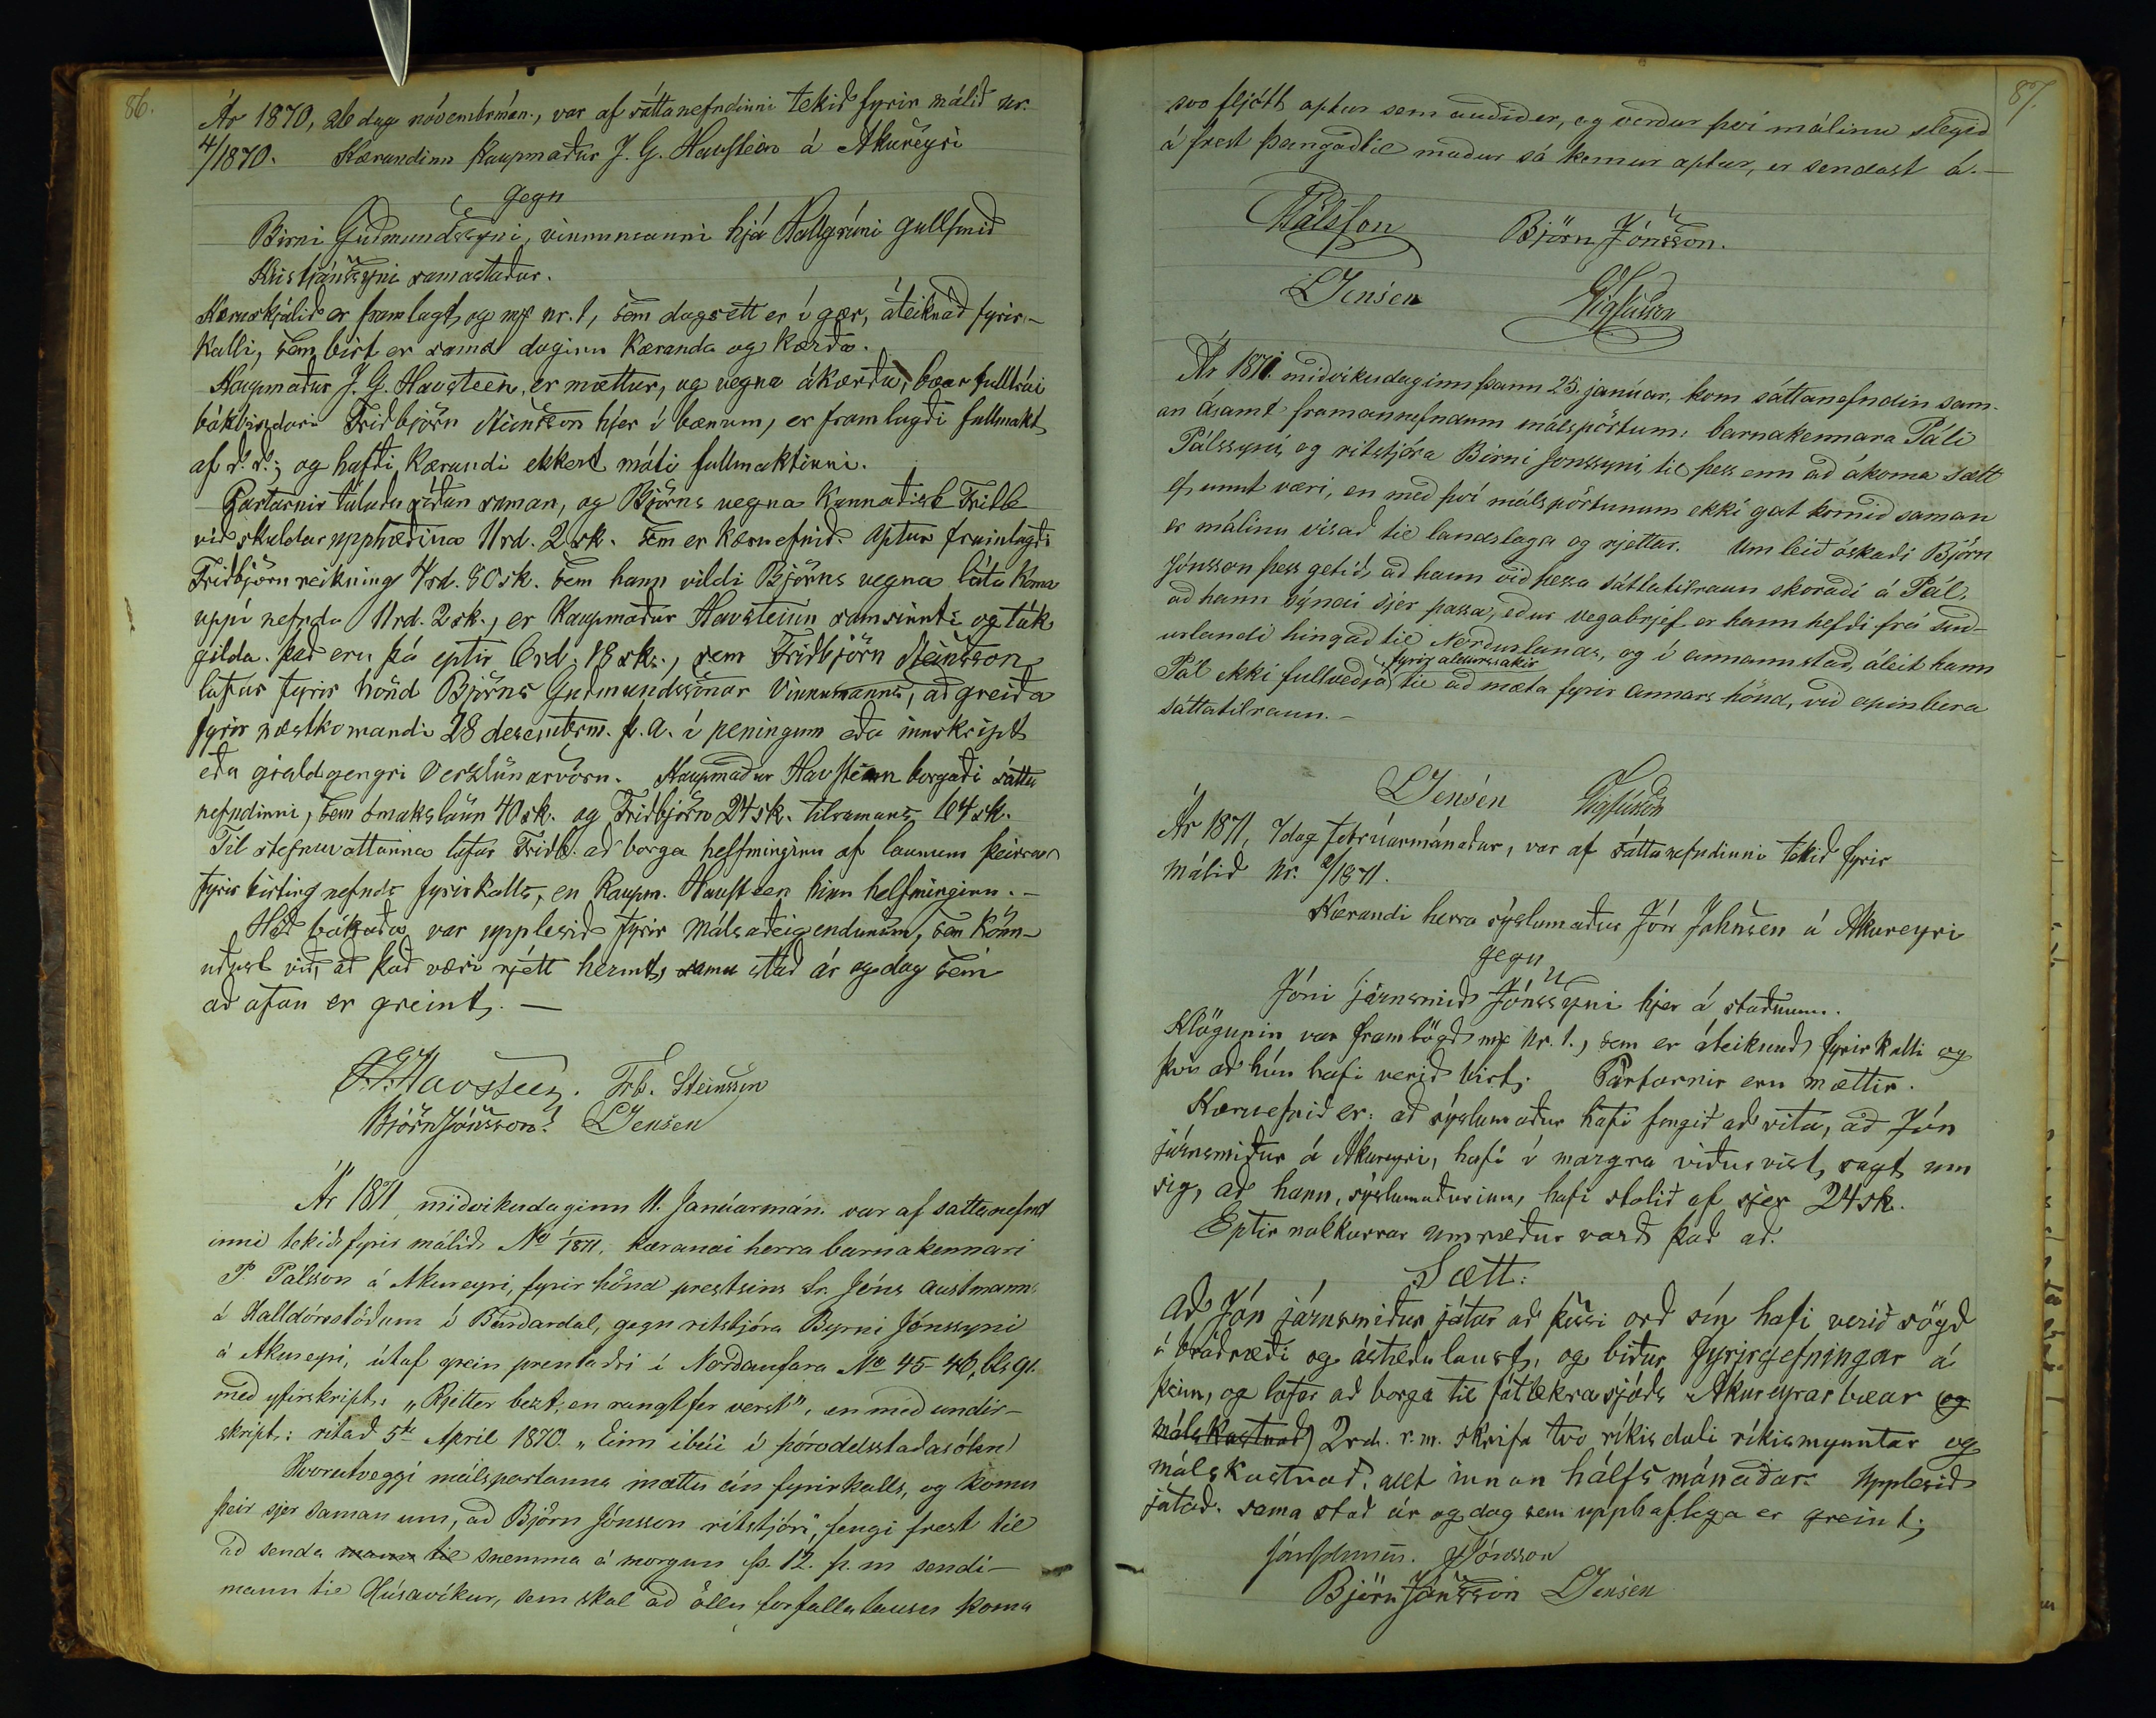 86.
Ár 1870, 26 dag nóvembrmán., var af sáttanefndinni tekið fyrir málið nr.
4/1870. Kærandinn kaupmaður J. G. Havsteen á Akureyri
gegn
Birni Guðmundssyni, vinnumanni hjá Hallgrími gullsmið
Kristjánssyni samastaðar.
Kæruskjalið er framlagt, og mp nr. 1, sem dagsett er í gær, áteiknað fyrir-
kalli, sem birt er sama daginn kæranda og kærða.
Kaupmaður J. G. Havsteen, er mættur, og vegna ákærða, bæar fulltrúi
bókbindari Friðbjörn Steinsson hjer í bænum, er framlagði fullmakt
af s. d.; og hafði kærandi ekkert móti fullmaktinni.
Partarnir töluðu síðan saman, og Björns vegna kannaðist Friðb
við skuldar upphæðina 11rd. 2sk. sem er kæruefnið. Aptur framlagði
Friðbjörn reikning 4rd. 80sk. sem hann vildi Björns vegna láta koma
uppí nefnda 11rd. 2sk., er kaupmaður Havsteinn samsinnti og tók
gilda. Það eru þá eptir 6rd. 18sk., sem Friðbjörn Steinsson
lofar fyrir hönd Björns Guðmundssonar vinnumanns, að greiða
fyrir næstkomandi 28 desembrm. þ. á. í peningum eða innskript
eða gjaldgengri verzlunarvöru. Kaupmaður Havsteinn borgaði sátta
nefndinni, sem ómakslaun 40sk. og Friðbjörn 24sk. tilsamans 64sk.
Til stefnuvottanna lofar Friðb. að borga helfminginn af launum þeirra
fyrir birting nefnds fyrirkalls, en kaupm. Havsteen hinn helfminginn. –
Hið bókaða var upplesið fyrir málsaðeigendunum, sem könn-
uðust við, að það væri rjétt hermt, sama stað ár og dag sem
að ofan er greint. —
J. G. Havsteen. Frb. Steinsson
Björn Jónsson. LJensen
Ár 1871, miðvikudaginn 11. Janúarmán. var af sáttanefnd
inni tekið fyrir málið No 1/1871, kærandi herra barnakennari
P. Pálsson á Akureyri, fyrir hönd prestsins sr. Jóns Austmanns
á Halldórsstöðum í Bárðardal, gegn ritstjóra Byrni Jónssyni
á Akureyri, útaf grein prentaðri í Norðanfara No 45-46, bls 91.
með yfirskript: „Rjetter bezt, en rangt fer verst", en með undir-
skript: ritað 5te April 1870. „Einn íbúi í þóroddsstaðasókn"
Hvorutveggi málspartanna mættu án fyrirkalls, og komu
þeir sjer saman um, að Björn Jónsson ritstjóri, fengi frest til
að senda mann til snemma á morgun þ. 12. þ. m sendi-
mann til Húsavíkur, sem skal að öllu forfallalausu koma
87.
svo fljótt aptur sem auðið er, og verður því málinu slegið
á frest þangaðtil maður sá kemur aptur, er sendast á. –
PPálsson Björn Jónsson.
LJensen Sigfússon
Ár 1871. miðvikudaginn þann 25. janúar, kom sáttanefndin sam-
an ásamt framannefndum málspörtum: barnakennara Páli
Pálssyni, og ritstjóra Birni Jonssyni, til þess enn að ákoma sætt
ef unnt væri, en með því málspörtunum ekki gat komið saman
er málinu vísað til landslaga og rjettar. Um leið óskaði Björn
Jónsson þess getið, að hann við þessa sáttatilraun skoraði á Pál
að hann sýndi sjer passa, eður vegabrjef er hann hefði frá Suð-
urlandi hingað til Norðurlands, og í annannstað, áleit hann
Pál ekki fullveðja fyrir aldurssakir til að mæta fyrir annars hönd, við opinbera
sáttatilraun. –
LJensen Sigfússon
Ár 1871, 7 dag febrúarmánaðar, var af sáttanefndinni tekið fyrir
málið nr. 2/1871.
Kærandi herra sýslumaður Jón Johnsen á Akureyri
gegn
Jóni járnsmið Jónssyni hjer á staðnum.
Klögunin var framlögð mp nr. 1., sem er áteiknuð fyrirkalli og
því að hún hafi verið birt. Partarnir eru mættir.
Kæruefnið er: að sýslumaður hafi fengið að vita, að Jón
járnsmiður á Akureyri, hafi í margra viðurvist, sagt um
sig, að hann, sýslumaðurinn, hafi stolið af sjer 24sk.
Eptir nokkurrar umræður varð það að.
Sætt:
að Jón járnsmiður játar að þessi orð sín hafi verið sögð
í bráðræði og ástæðulaust, og biður fyrirgefningar á
þeim, og lofar að borga til fátækrasjóðs Akureyrarbæar og
málskostnað 2rd. r.m. skrifa tvo ríkisdali ríkismyntar og
málskostnað, allt innan hálfs mánaðar. Upplesið
játað. sama stað ár og dag sem upphaflega er greint.
Jón Johnsen. JJónsson
Björn Jónsson LJensen